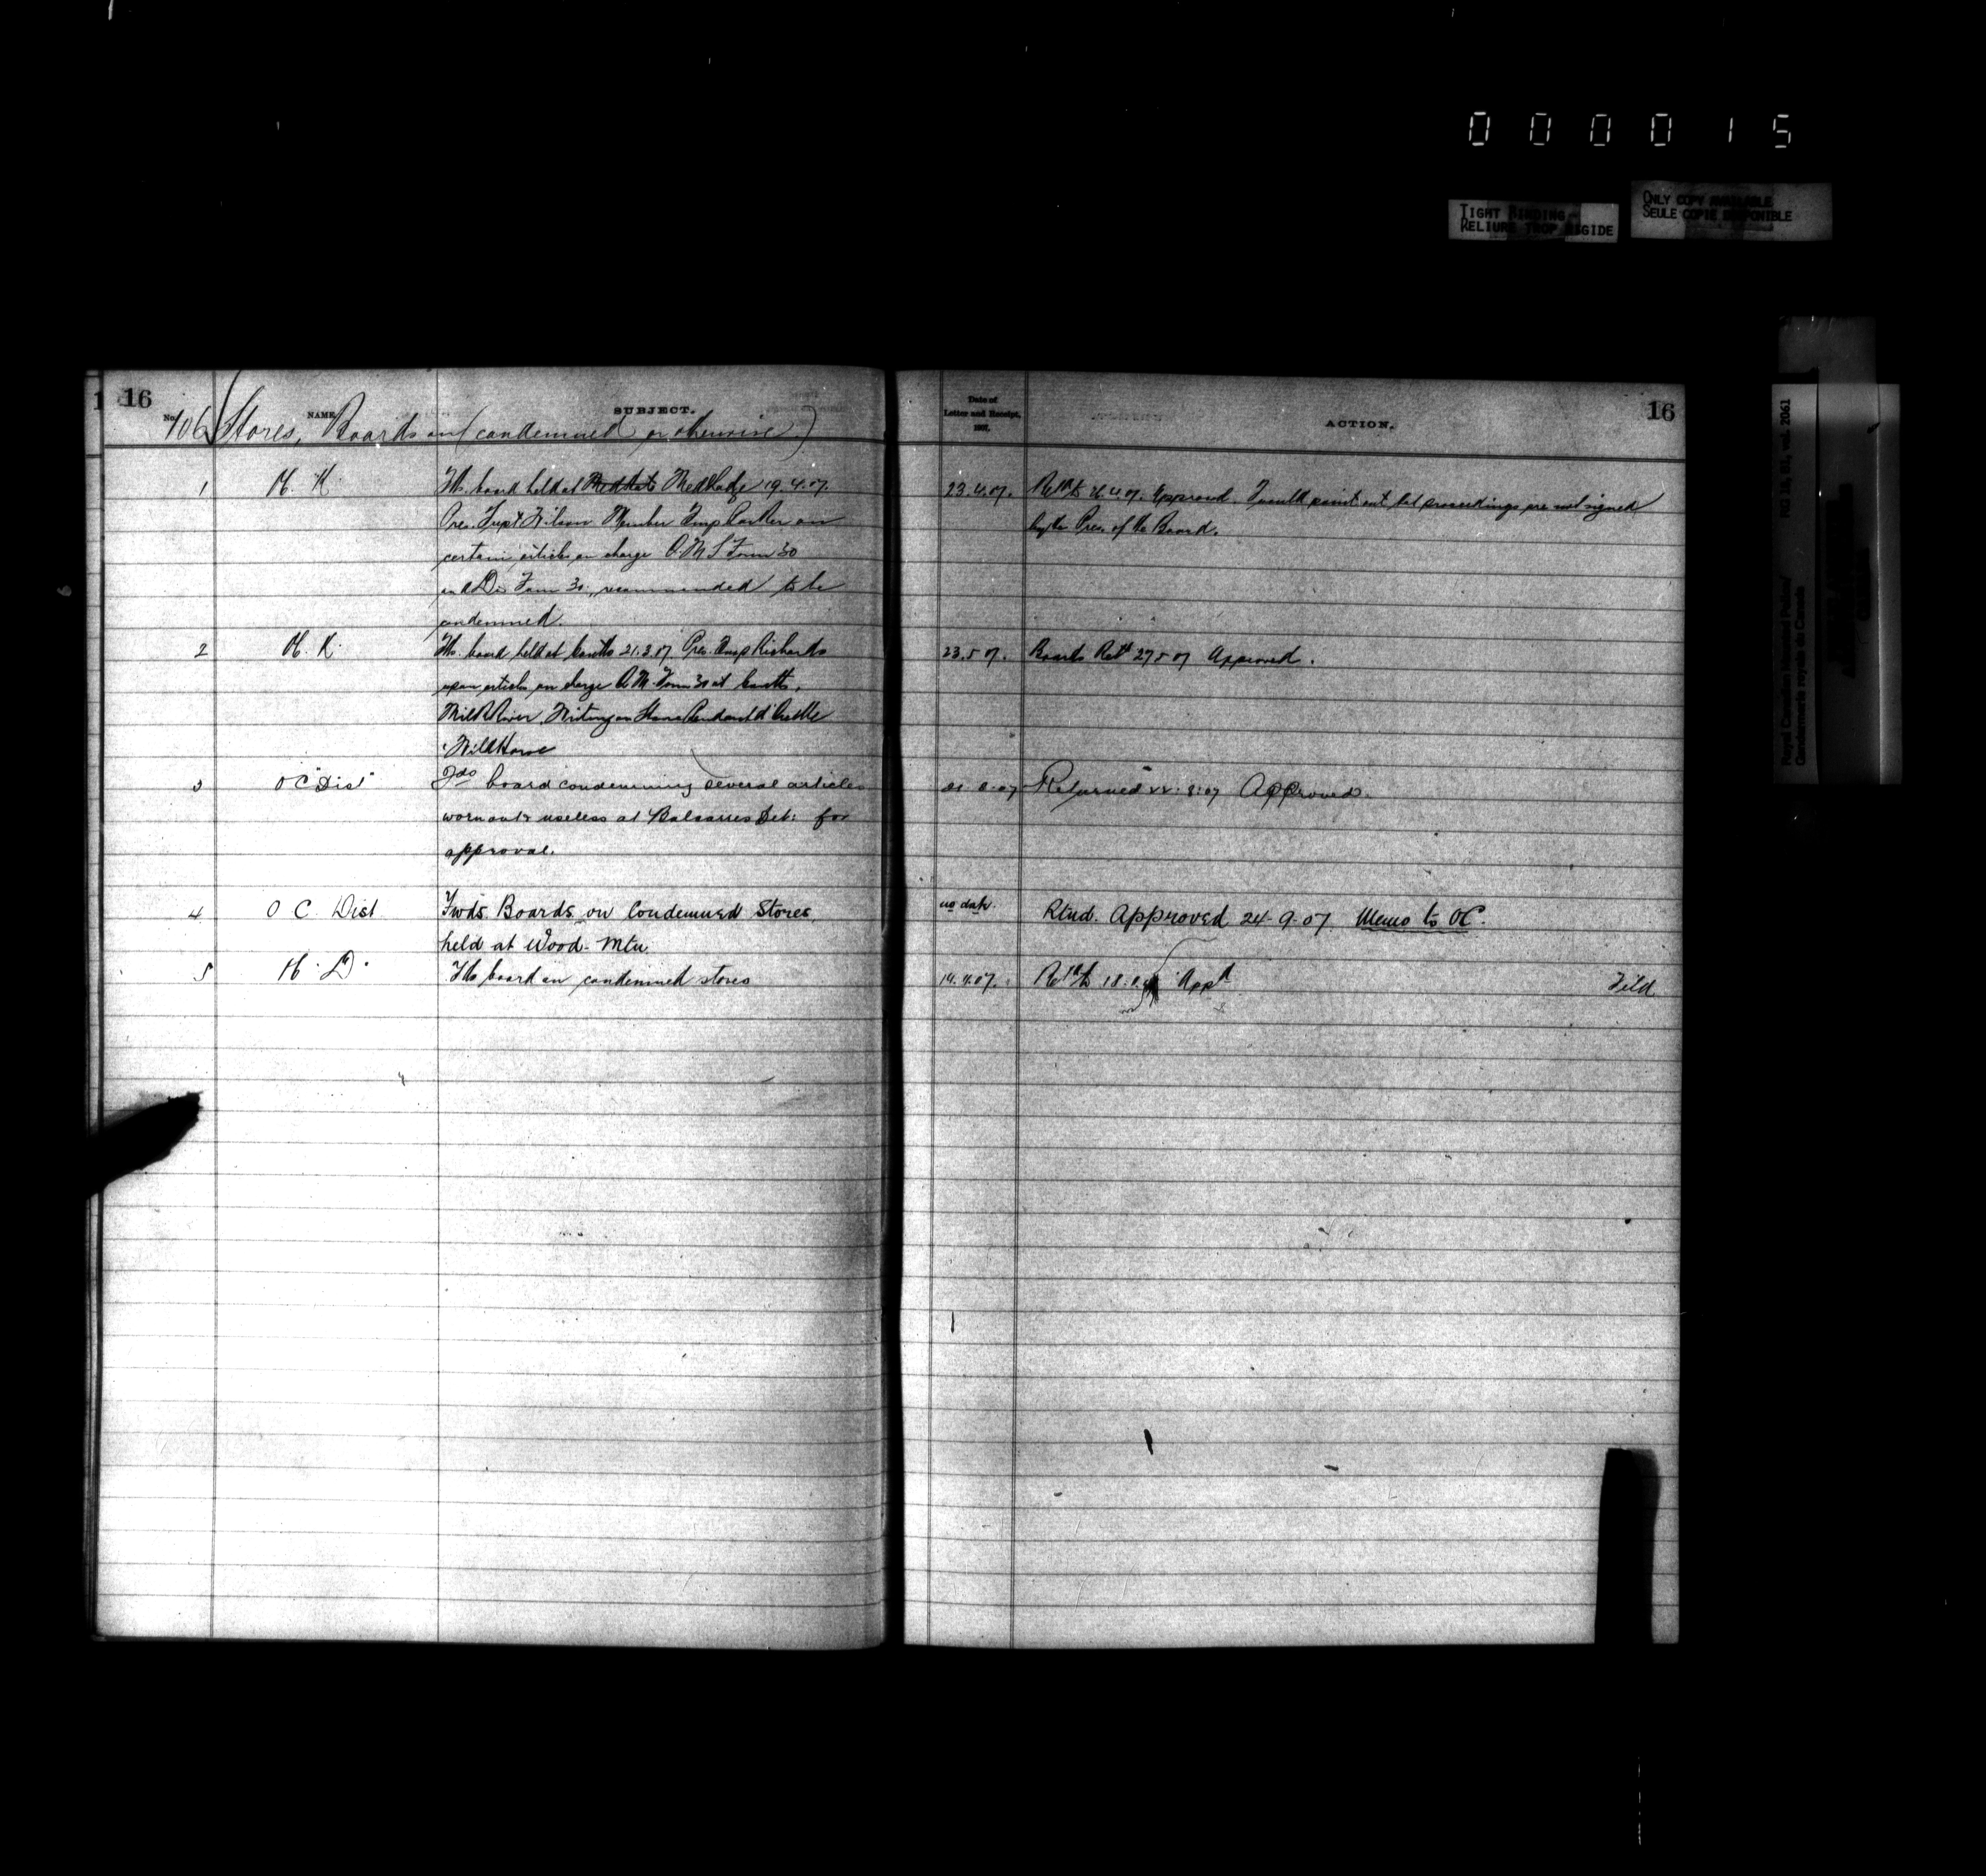 000015
TIGHT BINDING
RELIURE TROP RIGIDE
ONLY COPY AVAILABLE
SEULE COPIE DISPONIBLE
Royal Canadian Mounted Police/ RG 18, B1, vol. 2061
Gendarmerie royale du Canada
16
No. NAME SUBJECT.
106 Stores, Boards on (condemned or otherwise)
Date of
Letter and Receipt,
1907.
ACTION.
16
1 board held at 19.4.07.
Pres. Supt Wilson Member Insp on
certain articles on charge Q.M.S Form 30
Form 30 recommended to be
condemned.
23.4.07. 26.4.07. Approved. I would point out that proceedings are not signed
by the Pres. of the Board.
2 board held at 21.3.07 Pres. Insp Richards
upon articles on charge Q.M. Form 30 at
Milk River, Writing on Stone Pendant d'Oreille
Wild Horse
23.5.07. Boards Retd 27.5.07 Approved.
3 OC Dist board condemning several articles
worn out & useless at Det: for
approval.
Returned 8:07 Approved.
4 O C Dist Fwds Boards on Condemned Stores
held at Wood-Mtn
no date. Rtnd. Approved 24-9-07. Memo to OC.
5 board on condemned stores
14.4.07. 18 Appd
Filed